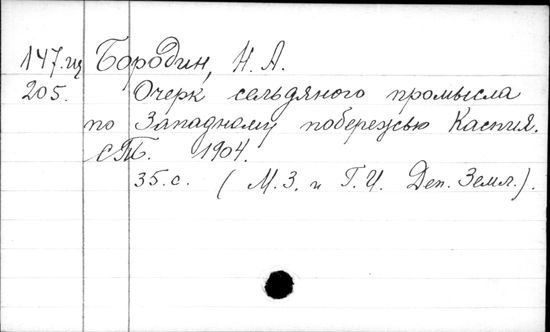 147.щ Бородин, Н. А.
205. Очерк сельдяного промысла
по Западному побережью Каспия.
СПб. 1904.
35.с. (М.З. и Г.И. Деп. Земл.).